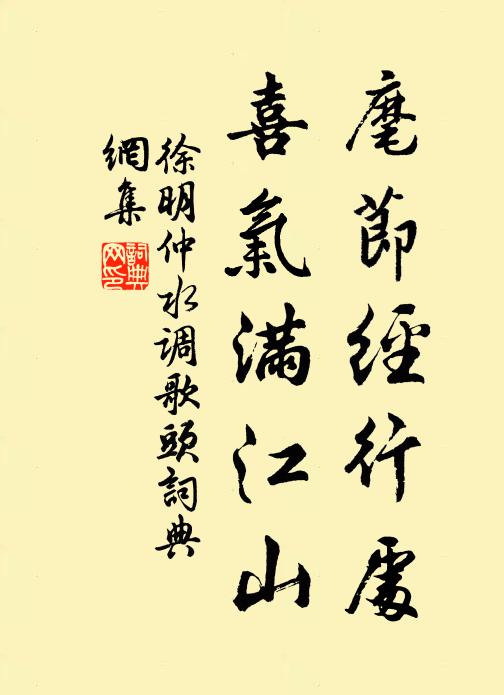 麾節經行處
喜氣滿江山
徐明仲水调歌頭詞典
網集
詞典網印